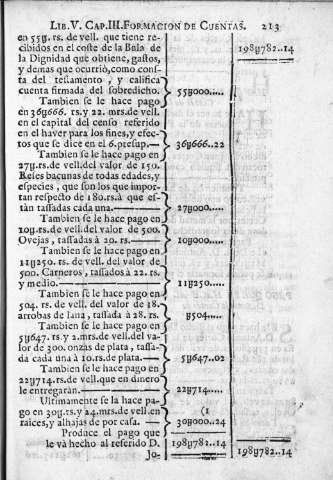 LIB. V. CAP. III. FORMACION DE CUENTAS. 213
en 55ɥ. rs. de vell. que tiene re-
cibidos en el coste de la Bula de 198ɥ782..14
la Dignidad que obtiene, gastos,
y demas que ocurrió, como cons-
ta del testamento, y califica
cuenta firmada del sobredicho. 55ɥ000....
Tambien se le hace pago
en 36ɥ666. rs. y 22. mrs. de vell.
en el capital del censo referido
en el haver para los fines, y efec-
tos que se dice en el 6. presup.— 36ɥ666..22
Tambien se le hace pago en
27ɥ. rs. de vell. del valor de 150.
Reses bacunas de todas edades, y
especies, que son los que impor-
tan respecto de 180. rs. à que es-
tàn tassadas cada una.— 27ɥ000....
Tambien se le hace pago en
10ɥ. rs. de vell. del valor de 500.
Ovejas, tassadas à 20. rs.— 10ɥ000....
Tambien se le hace pago en
11ɥ250. rs. de vell. del valor de
500. Carneros, tassados à 22. rs.
y medio.— 11ɥ250....
Tambien se le hace pago en
504. rs. de vell. del valor de 18.
arrobas de lana, tassada à 28. rs. ɥ504....
Tambien se le hace pago en
5ɥ647. rs. y 2. mrs. de vell. del va-
lor de 300. onzas de plata, tassa-
da cada una à 10. rs. de plata.— 5ɥ647..02
Tambien se le hace pago en
22ɥ714. rs. de vell. que en dinero
le entregaràn.— 22ɥ714....
Ultimamente se le hace pa-
go en 30ɥ. rs. y 24. mrs. de vell. en (1
raices, y alhajas de por casa.— 30ɥ000..24
Produce el pago que
le và hecho al referido D. 198ɥ782..14
Jo- 198ɥ782..14